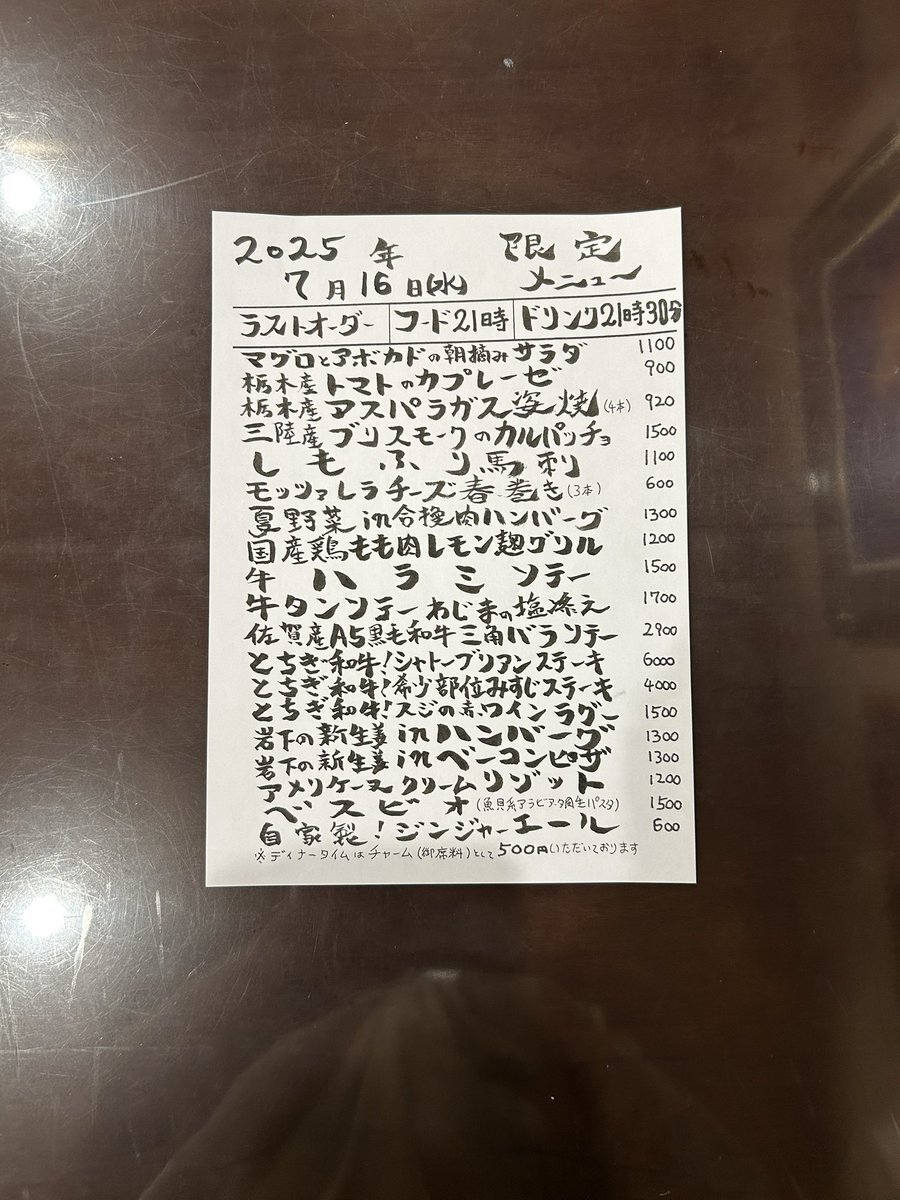 2025年 限定
7月16日(水) メニュー
ラストオーダー フード21時 ドリンク21時30分
マグロとアボカドの朝摘みサラダ 1100
栃木産トマトのカプレーゼ 900
栃木産アスパラガス姿焼(4本) 920
三陸産ブリスモークのカルパッチョ 1500
しもふり馬刺 1100
モッツァレラチーズ春巻き(3本) 600
夏野菜in合挽肉ハンバーグ 1300
国産鶏もも肉レモン麹グリル 1200
牛ハラミソテー 1500
牛タンソテーわじまの塩添え 1700
佐賀産A5黒毛和牛三角バラソテー 2900
とちぎ和牛!シャトーブリアンステーキ 6000
とちぎ和牛!希少部位みすじステーキ 4000
とちぎ和牛!スジの赤ワインラグー 1500
岩下の新生姜inハンバーグ 1300
岩下の新生姜inベーコンピザ 1300
アメリケーヌクリームリゾット 1200
ベスビオ(魚貝系アラビアータ生パスタ) 1500
自家製!ジンジャーエール 600
※ディナータイムはチャーム(御席料)として500円いただいております